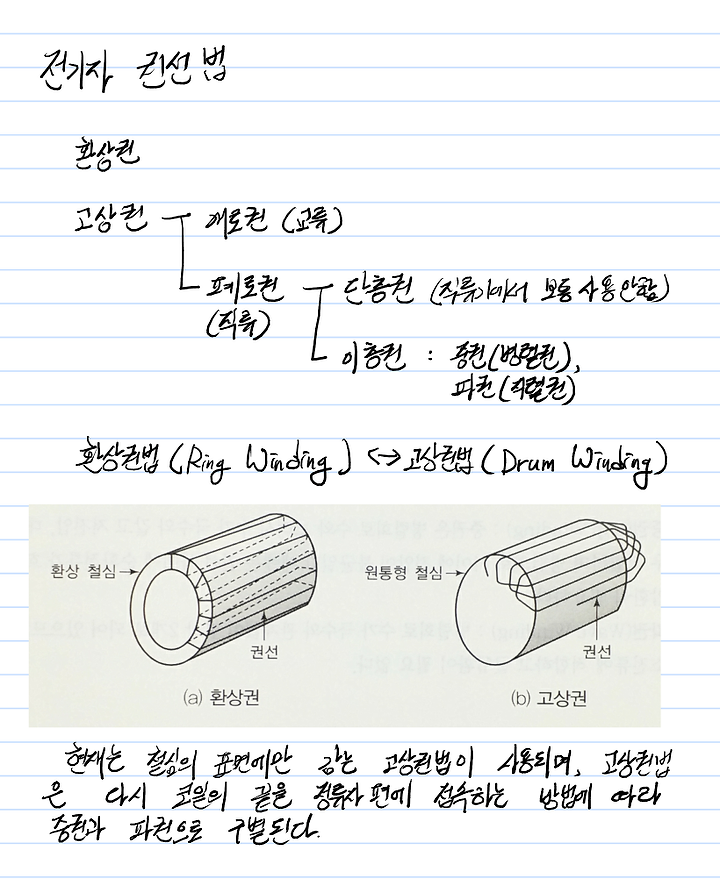 전기자 권선법
환상권
고상권 개로권 (교류)
폐로권 단층권 (직류기에서 보통 사용안함)
(직류)
이층권 : 중권(병렬권),
파권(직렬권)
환상권법 (Ring Winding) <-> 고상권법 (Drum Winding)
환상 철심 원통형 철심
권선 권선
(a) 환상권 (b) 고상권
현재는 철심의 표면에만 감는 고상권법이 사용되며, 고상권법
은 다시 코일의 끝을 정류자편에 접속하는 방법에 따라
중권과 파권으로 구별된다.